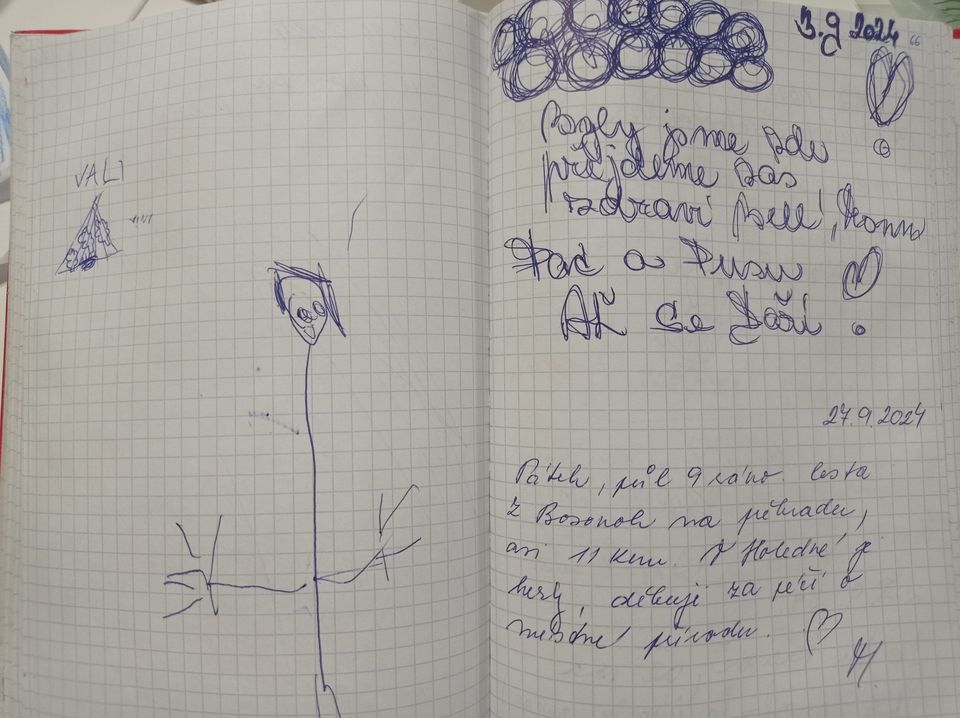 VALI
3.9 2024
66
Byly jsme zde
přijdeme zas
zdraví Bell
Pac a Pusu
Ať se Daří
27.9.2024
Pátek, půl 9 ráno. Cesta
z Bosonoh na přehradu,
asi 11 km. V Holedné je
hezky, děkuji za péči o
místní přírodu.